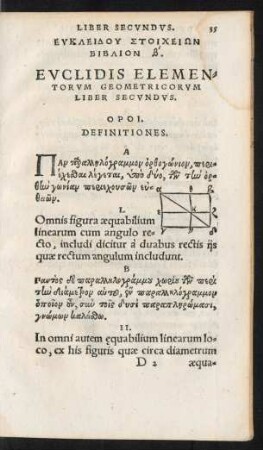 LIBER SECVNDVS. 35
ΕΥΚΛΕΙΔΟΥ ΣΤΟΙΧΕΙΩΝ
ΒΙΒΛΙΟΝ Β΄.
EVCLIDIS ELEMEN-
TORVM GEOMETRICORVM
LIBER SECVNDVS.
ΟΡΟΙ.
DEFINITIONES.
Α
Πᾶν παραλληλόγραμμον ὀρθογώνιον, περι-
έχεσθαι λέγεται, ὑπὸ δύο, τῶν τὴν ὀρ-
θὴν γωνίαν περιεχουσῶν εὐ-
θειῶν.
I.
Omnis figura æquabilium
linearum cum angulo re-
cto, includi dicitur à duabus rectis ijs
quæ rectum angulum includunt.
Β
Παντὸς δὲ παραλληλογράμμου χωρίου τῶν περὶ
τὴν διάμετρον αὐτοῦ, ἓν παραλληλόγραμμον
ὁποῖον ἂν, σὺν τοῖς δυσὶ παραπληρώμασι,
γνώμων καλείσθω.
II.
In omni autem æquabilium linearum lo-
co, ex his figuris quæ circa diametrum
D 2 æqua-